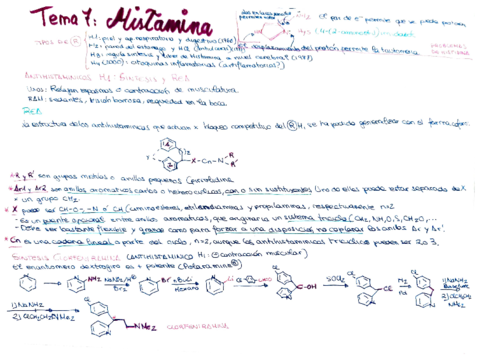 Tema 7: Histamina
TIPOS DE R
H1: piel y ap respiratorio y digestivo (1966)
H2: pared del estomago y HCl (antiulcerosos)
H3: regula sintesis y liber de Histamina a nivel cerebral (1987)
H4 (2000): ataques inflamatorios (antiinflamatorios?)
el par de e⁻ permite que se pueda
desplazamiento del protón permite la tautomería
ANTIHISTAMINICOS H1: SINTESIS Y REA
Usos: Relajan espasmos = contracción de musculatura.
RAM: sedantes, visión borrosa, sequedad en la boca.
REA
La estructura de los antihistaminicos que actuan x bloqueo competitivo del R H1 se ha podido generalizar con el farmacóforo:
X-Cn-N
R
R'
* R y R' son grupos metilos o anillos pequeños (pirrolidina
* Ar1 y Ar2 son anillos aromaticos carbo o heterociclicos, con o sin sustituyentes. Uno de ellos puede estar separado de X
x un grupo CH2.
* X puede ser CH-O-, -N o CH (aminoeteres, etilendiaminas y propilaminas, respectivamente n=2
- Es un puente opcional entre anillos aromaticos, que originaria un sistema triciclo (CH2, NH, O, S, CH2O, ...
- Debe ser bastante flexible y grande como para forzar a una disposición no coplanar los anillos Ar y Ar'.
* Cn es una cadena lineal a parte del ciclo, n=2, aunque los antihistaminicos triciclicos pueden ser 2 o 3.
SINTESIS CLORFENIRAMINA (ANTIHISTAMINICO H1: contracción muscular)
El enantiomero dextrogiro es + potente (Polaramine®)
N
NH2
NaNO2/H⁺
Br2
N
Br
BuLi
Hexano
N
Li
Cl
CHO
Cl
C-OH
N
SOCl2
Cl
Cl
N
H2
Pd
Cl
N
1) NaNH2
1) NaNH2
2) ClCH2CH2NMe2
Cl
N
NMe2
CLORFENIRAMINA